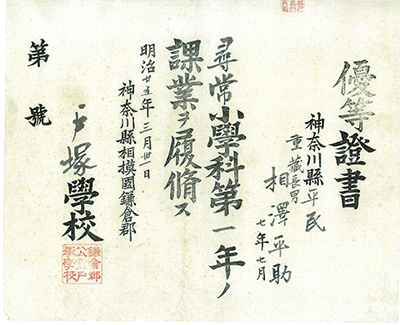 優等證書
神奈川縣平民
重藏長男
相澤平助
七年七月
尋常小學科第一年ノ
課業ヲ履脩ス
明治廿五年三月卅一日
神奈川縣相摸國鎌倉郡
戸塚學校
鎌倉郡
公立戸
塚學校
第 號